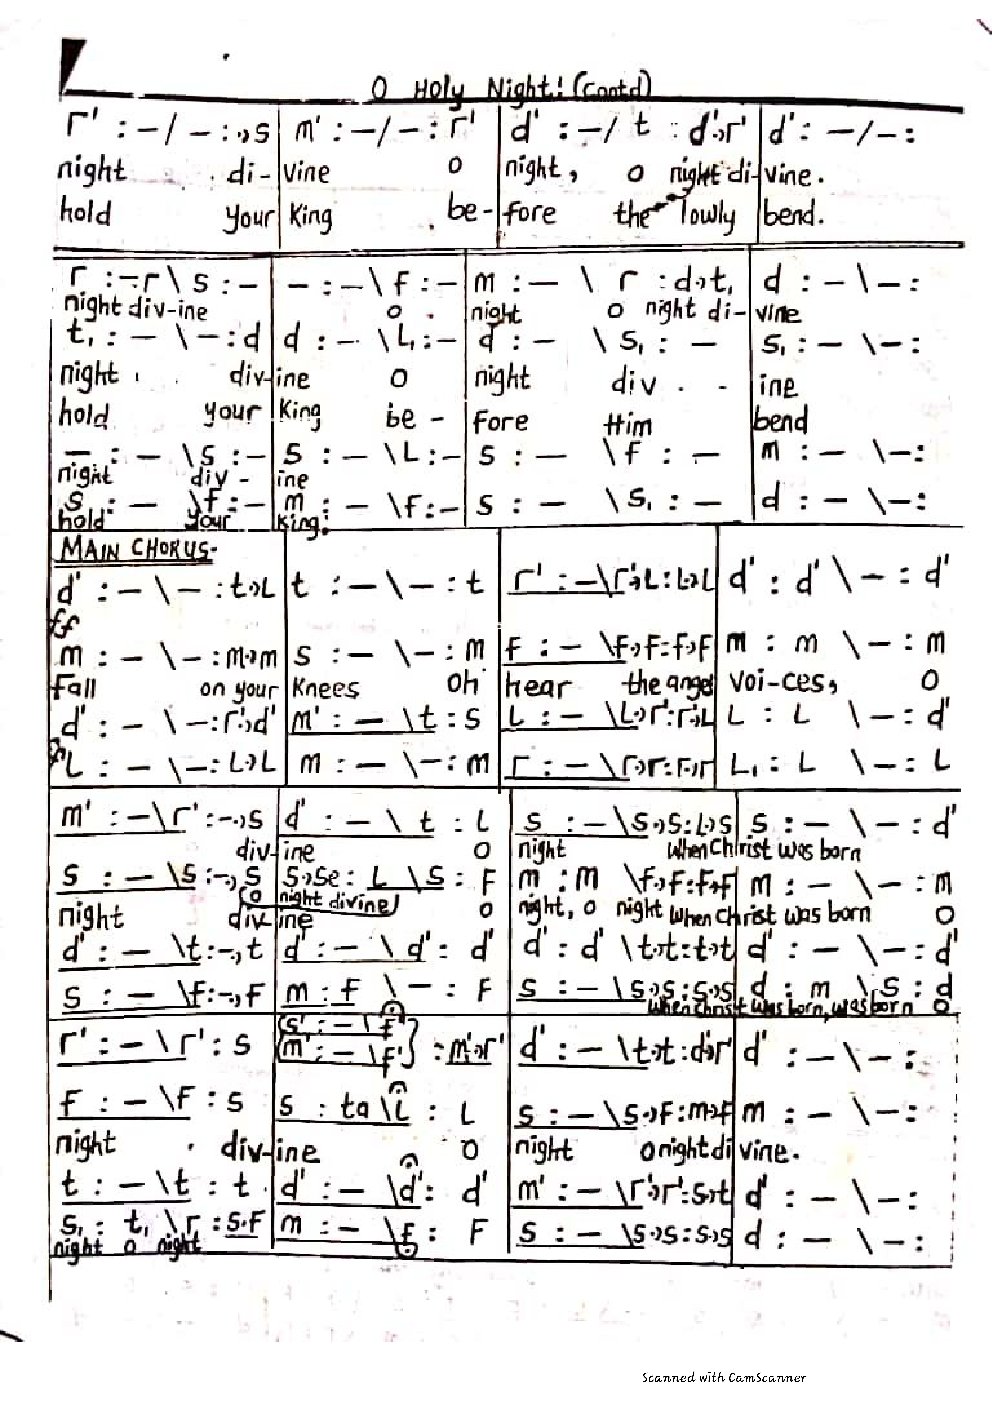 O Holy Night! (Contd)
r' : – / – : ,s | m' : – / – : r' | d' : – / t : d',r' | d' : – / – :
night di- | vine O | night, O night di- | vine.
hold your | King be- | fore the lowly | bend.
r : –r \ s : – | – : – \ f : – | m : – \ r : d,t, | d : – \ – :
night div-ine O night O night di- vine
t, : – \ – : d | d : – \ L, : – | d : – \ s, : – | s, : – \ – :
night div- ine O night div - - ine
hold your King be - Fore Him bend
– : – \ s : – | s : – \ L : – | s : – \ f : – | m : – \ – :
night div - ine
s : – \ f : – | m : – \ f : – | s : – \ s, : – | d : – \ – :
hold your King.
MAIN CHORUS-
d' : – \ – : t,L | t : – \ – : t | r' : – \ r',L : L,L | d' : d' \ – : d'
ff
m : – \ – : m,m | s : – \ – : m | f : – \ f,f : f,f | m : m \ – : m
Fall on your Knees Oh hear the angel voi-ces, O
d' : – \ – : r',d' | m' : – \ t : s | L : – \ L,r' : r',L | L : L \ – : d'
L : – \ – : L,L | m : – \ – : m | r : – \ r,r : r,r | L, : L \ – : L
m' : – \ r' : –,s | d' : – \ t : L | s : – \ s,s : L,s | s : – \ – : d'
div-ine O night when Christ was born
s : – \ s : –, s | s,se : L \ s : F | m : m \ f,f : f,f | m : – \ – : m
O night divine
night div-ine O night, O night when Christ was born O
d' : – \ t : –, t | d' : – \ d' : d' | d' : d' \ t,t : t,t | d' : – \ – : d'
s : – \ f : –, F | m : f \ – : F | s : – \ s,s : s,s | d : m \ s : d
when Christ was born, was born O
{s' : – \ f'}
r' : – \ r' : s | {m' : – \ f'} : m',r' | d' : – \ t,t : d',r' | d' : – \ – :
F : – \ F : s | s : ta \ L : L | s : – \ s,F : m,F | m : – \ – :
night div-ine O night O night di vine.
t : – \ t : t | d' : – \ d' : d' | m' : – \ r',r' : s,t | d' : – \ – :
s, : t, \ r : s,F | m : – \ f : F | s : – \ s,s : s,s | d : – \ – :
night O night
Scanned with CamScanner